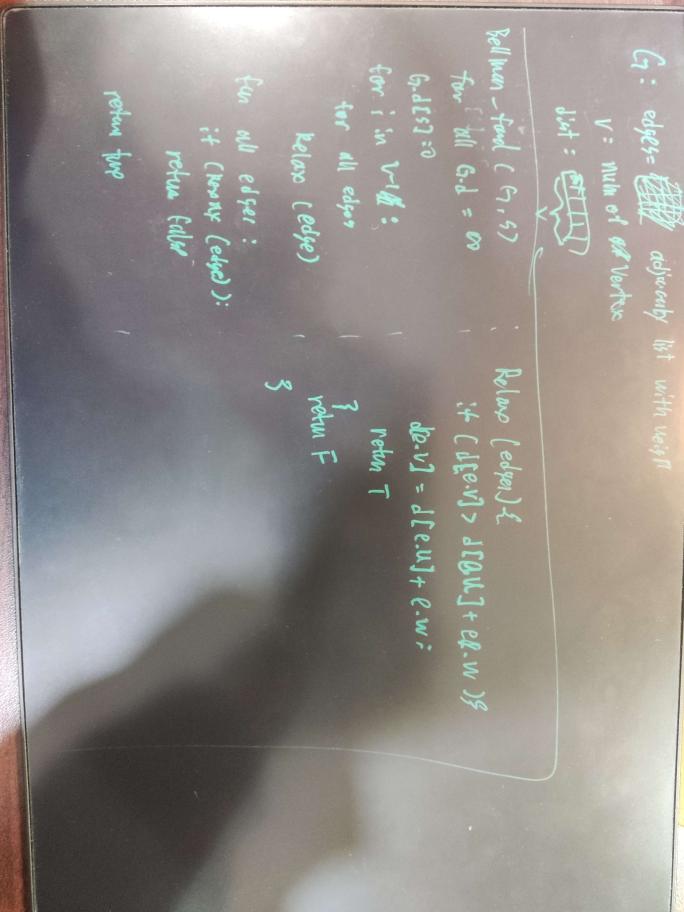 G: edges = adjacency list with weight
V = num of Vertex
dist :
V
Bellman-ford (G, s)
for all G.d = ∞
G.d[s]=0
for i in V-1 :
for all edges
Relax (edge)
for all edges :
if (Relax (edge)):
return false
return true
Relax (edges) {
if (d[e.v] > d[e.u] + e.w ){
d[e.v] = d[e.u] + e.w ;
return T
}
return F
}